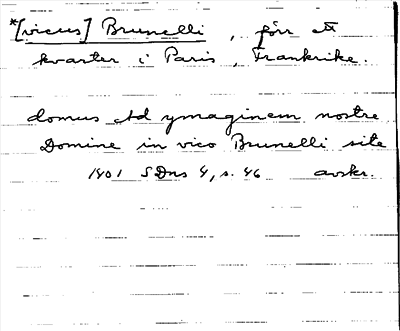 *[vicus] Brunelli, förr ett
kvarter i Paris, Frankrike.
domus Ad ymaginem nostre
Domine in vico Brunelli site
1401 SDns 4, s. 46 avskr.